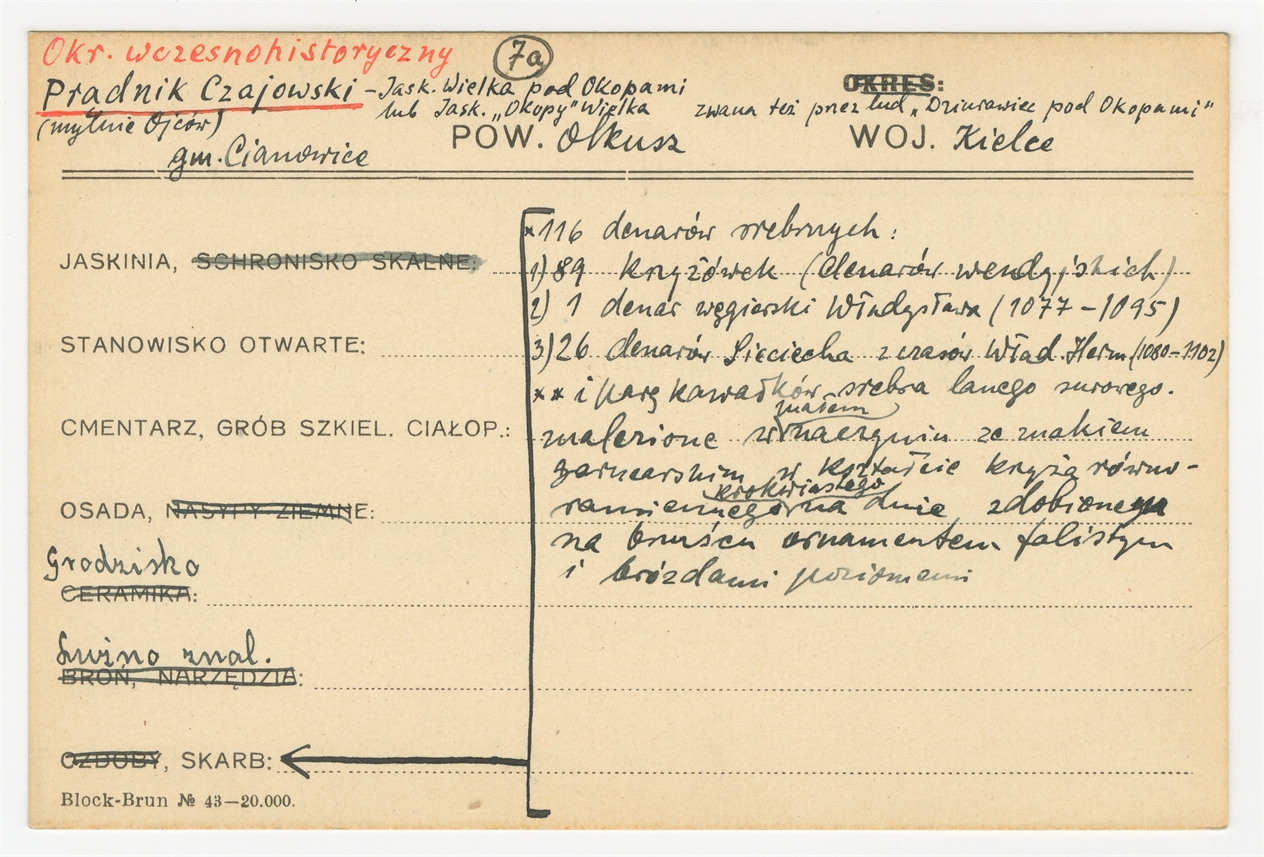 Okr. wczesnohistoryczny
7a
Prądnik Czajowski – Jask. Wielka pod Okopami
OKRES:
(mylnie Ojców)
lub Jask. „Okopy" Wielka
zwana też przez lud „Dziurawiec pod Okopami"
gm. Cianowice
POW. Olkusz
WOJ. Kielce
JASKINIA, SCHRONISKO SKALNE:
STANOWISKO OTWARTE:
CMENTARZ, GRÓB SZKIEL. CIAŁOP.:
OSADA, NASYPY ZIEMNE:
Grodzisko
CERAMIKA:
Luźno znal.
BROŃ, NARZĘDZIA:
OZDOBY, SKARB:
Block-Brun № 43—20.000.
*116 denarów srebrnych:
1) 89 krzyżówek (denarów wendyjskich)
2) 1 denar węgierski Władysława (1077–1095)
3) 26 denarów Sieciecha z czasów Wład. Herm (1080–1102)
** i parę kawałków srebra lanego surowego.
znalezione w małem naczyniu ze znakiem
garncarskim w kształcie krzyża równo-
ramiennego krokwiastego na dnie, zdobionego
na brzuścu ornamentem falistym
i brózdami poziomemi